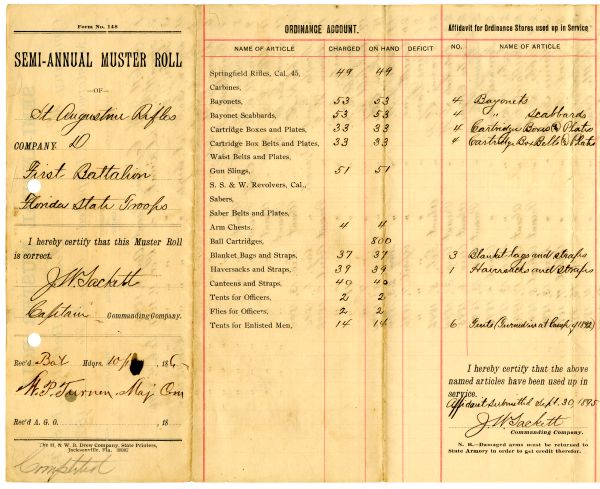 Form No. 148
SEMI-ANNUAL MUSTER ROLL
—OF—
St. Augustine Rifles
COMPANY. D
First Battalion
Florida State Troops
I hereby certify that this Muster Roll
is correct.
J. W. Sackett
Captain Commanding Company.
Rec'd Bat Hdqrs. 10/ 189
W. P. Turner, Maj Com
Rec'd A. G. O. 18
The H. & W. B. Drew Company, State Printers,
Jacksonville, Fla.
Completed
ORDINANCE ACCOUNT.
NAME OF ARTICLE CHARGED ON HAND DEFICIT
Springfield Rifles, Cal. 45, 49 49
Carbines,
Bayonets, 53 53
Bayonet Scabbards, 53 53
Cartridge Boxes and Plates, 33 33
Cartridge Box Belts and Plates, 33 33
Waist Belts and Plates,
Gun Slings, 51 51
S. S. & W. Revolvers, Cal.,
Sabers,
Saber Belts and Plates,
Arm Chests, 4 4
Ball Cartridges, 800
Blanket Bags and Straps, 37 37
Haversacks and Straps, 39 39
Canteens and Straps, 40 40
Tents for Officers, 2 2
Flies for Officers, 2 2
Tents for Enlisted Men, 14 14
Affidavit for Ordinance Stores used up in Service
NO. NAME OF ARTICLE
4 Bayonets
4 " Scabbards
4 Cartridge Boxes & Plates
4 Cartridge Box Belts & Plates
3 Blanket-bags and straps
1 Haversacks and straps
6 Tents ( at Camp of 1892)
I hereby certify that the above
named articles have been used up in
service.
Affidavit submitted Sept. 30, 1895
J. W. Sackett
Commanding Company.
N. B.—Damaged arms must be returned to
State Armory in order to get credit therefor.